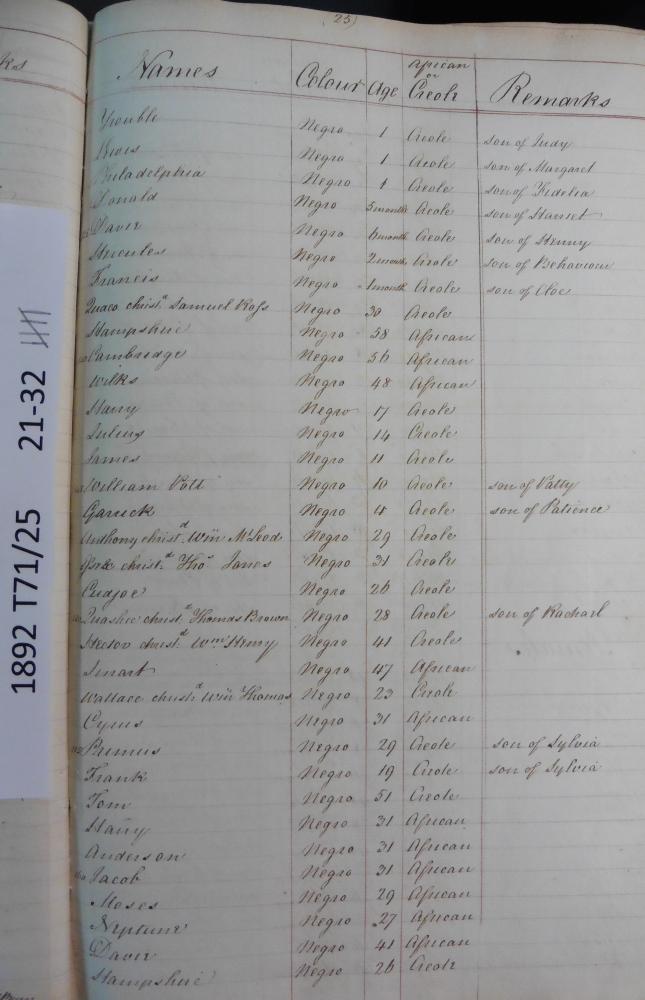 25)
Names Colour Age African or Creole Remarks
Trouble Negro 1 Creole son of Judy
Negro 1 Creole son of Margaret
Philadelphia Negro 1 Creole son of Fidelia
Donald Negro 5 months Creole son of Harriet
Davie Negro 6 month Creole son of Henny
Hercules Negro 2 months Creole son of Behaviour
Francis Negro 1 month Creole son of Cloe
Quaco christd. Samuel Ross Negro 30 Creole
Hampshire Negro 58 African
Cambridge Negro 56 African
Wilks Negro 48 African
Harry Negro 17 Creole
Julius Negro 14 Creole
James Negro 11 Creole
William Pott Negro 10 Creole son of Patty
Garrick Negro 4 Creole son of Patience
Anthony christd. Wm McLeod Negro 29 Creole
christd. Thos James Negro 31 Creole
Cudjoe Negro 26 Creole
Quashie christd. Thomas Brown Negro 28 Creole son of Rachael
Hector christd. Wm Henry Negro 41 Creole
Smart Negro 47 African
Wallace christd. Wm Thomas Negro 23 Creole
Cyrus Negro 31 African
Primus Negro 29 Creole son of Sylvia
Frank Negro 19 Creole son of Sylvia
Tom Negro 51 Creole
Harry Negro 31 African
Anderson Negro 31 African
Jacob Negro 31 African
Moses Negro 29 African
Neptune Negro 27 African
Davie Negro 41 African
Hampshire Negro 26 Creole
1892 T71/25 21-32